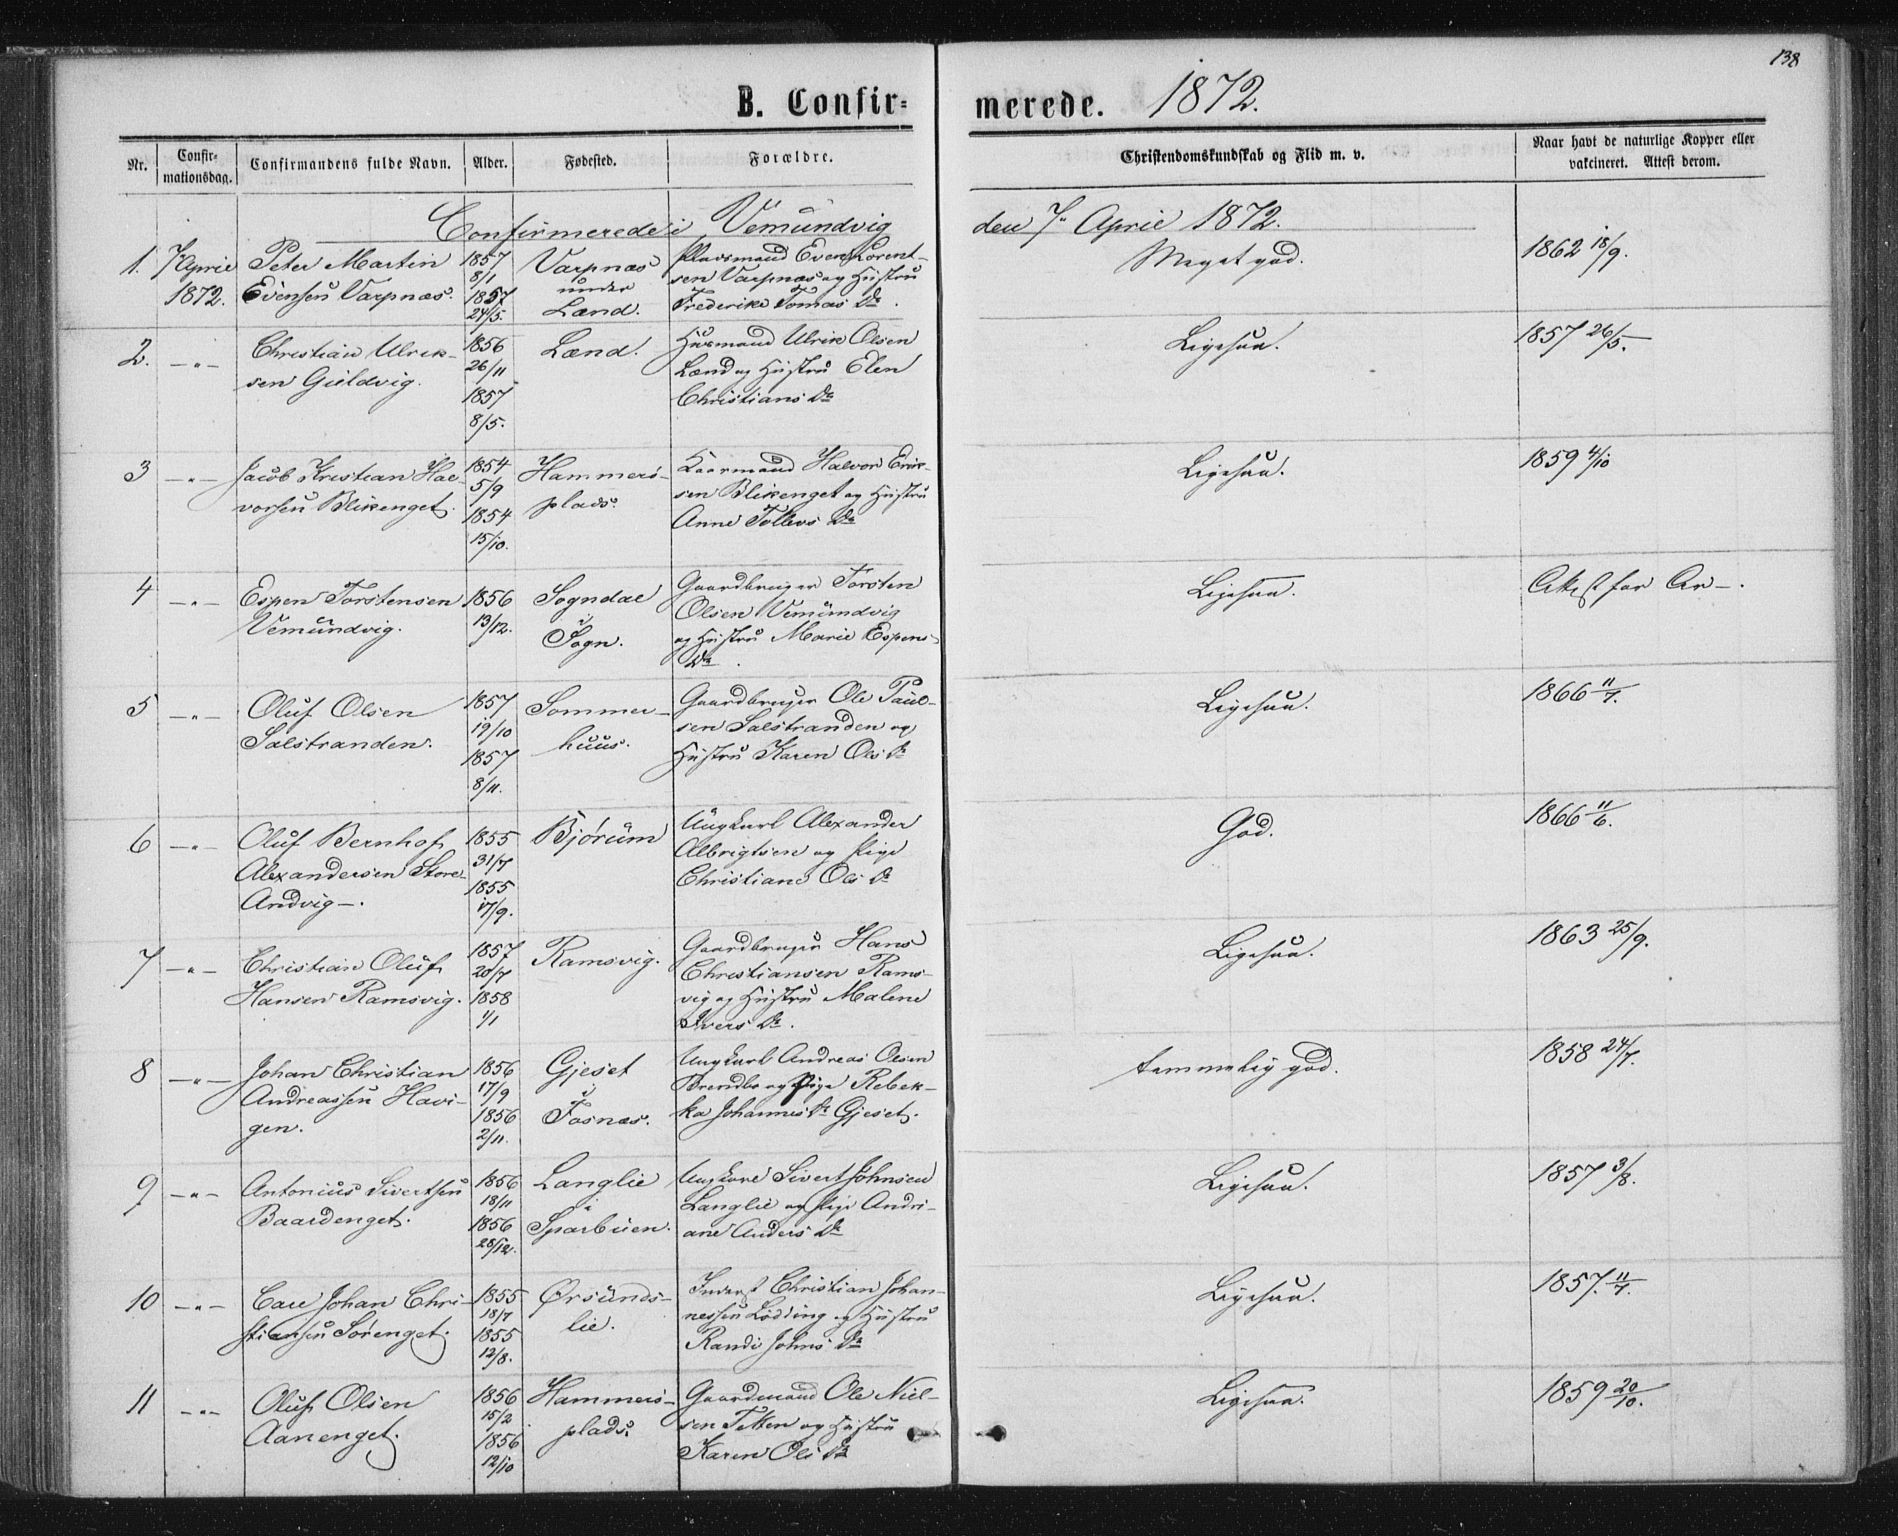 138
B. Confir=
merede. 1872.
Nr.
Confir-
mationsdag.
Confirmandens fulde Navn.
Alder.
Fødested.
Forældre.
Christendomskundskab og Flid m. v.
Naar havt de naturlige Kopper eller
vakcineret. Attest derom.
Confirmerede i Vemundvig
den 7de April 1872.
1. 7 April
1872.
Peter Martin
Evensen Varpnæs.
1857
8/1
1857
24/5.
Varpnæs
under
Lænd.
Pladsmand Even Lorent-
sen Varpnæs og Hustru
Frederike Tomas Dr.
Meget god.
1862 18/9.
2. -"-
Christian Ulrik-
sen Guldvig.
1856
26/11
1857
8/5.
Lænd.
Husmand Ulrik Olsen
Lænd og Hustru Elen
Christians Dr
Ligesaa.
1857 26/5.
3 -"-
Jacob Kristian Hal-
vorsen Blikenget.
1854
5/9
1854
15/10.
Hammers-
plads.
Kaarmand Halvor Erik-
sen Blikenget og Hustru
Anne Tollevs Dr
Ligesaa.
1859 4/10
4 -"-
Espen Torstensen
Vemundvig.
1856
13/12.
Sogndal
i
Sogn.
Gaardbruger Torsten
Olsen Vemundvig
og Hustru Marie Espens-
Dr.
Ligesaa.
Attest for Ar-.
5 -"-
Oluf Olsen
Salstranden.
1857
19/10
1857
8/11.
Sommer-
huus.
Gaardbruger Ole Paul-
sen Salstranden og
Hustru Karen Ols Dr
Ligesaa.
1866 11/7.
6 -"-
Oluf Bernhof
Alexandersen Store-
Andvig-.
1855
31/7
1855
17/9.
Bjørum
Ungkarl Alexander
Albrigtsen og Pige
Christiane Ols Dr
God.
1866 11/6.
7 -"-
Christian Oluf
Hansen Ramsvig.
1857
20/7
1858
1/1
Ramsvig.
Gaardbruger Hans
Christiansen Rams-
vig og Hustru Malene
Ivers Dr.
Ligesaa.
1863 25/9.
8 -"-
Johan Christian
Andreassen Havi-
gen.
1856
17/9
1856
2/11.
Gjeset
i
Fosnæs.
Ungkarl Andreas Olsen
Brendbo og Pige Rebek-
ka Johannes Dr Gjeset.
temmelig god.
1858 24/7.
9 -"-
Antonius Sivertsen
Baardenget.
1856
18/11
1856
28/12.
Langlie
i
Sparbuen.
Ungkarl Sivert Johnsen
Langlie og Pige Andri-
ane Anders Dr
Ligesaa.
1857 3/8.
10 -"-
Carl Johan Chri-
stiansen Sørenget.
1855
18/7
1855
12/8.
Ørsunds-
lie.
Inderst Christian Johan-
nessen Lødding og Hustru
Randi Johns Dr
Ligesaa.
1857. 11/7.
11 -"-
Oluf Olsen
Aanenget.
1856
15/2
1856
12/10
Hammers-
plads.
Gaardmand Ole Niel-
sen Tetten og Hustru
Karen Ols Dr
Ligesaa.
1859 20/10.